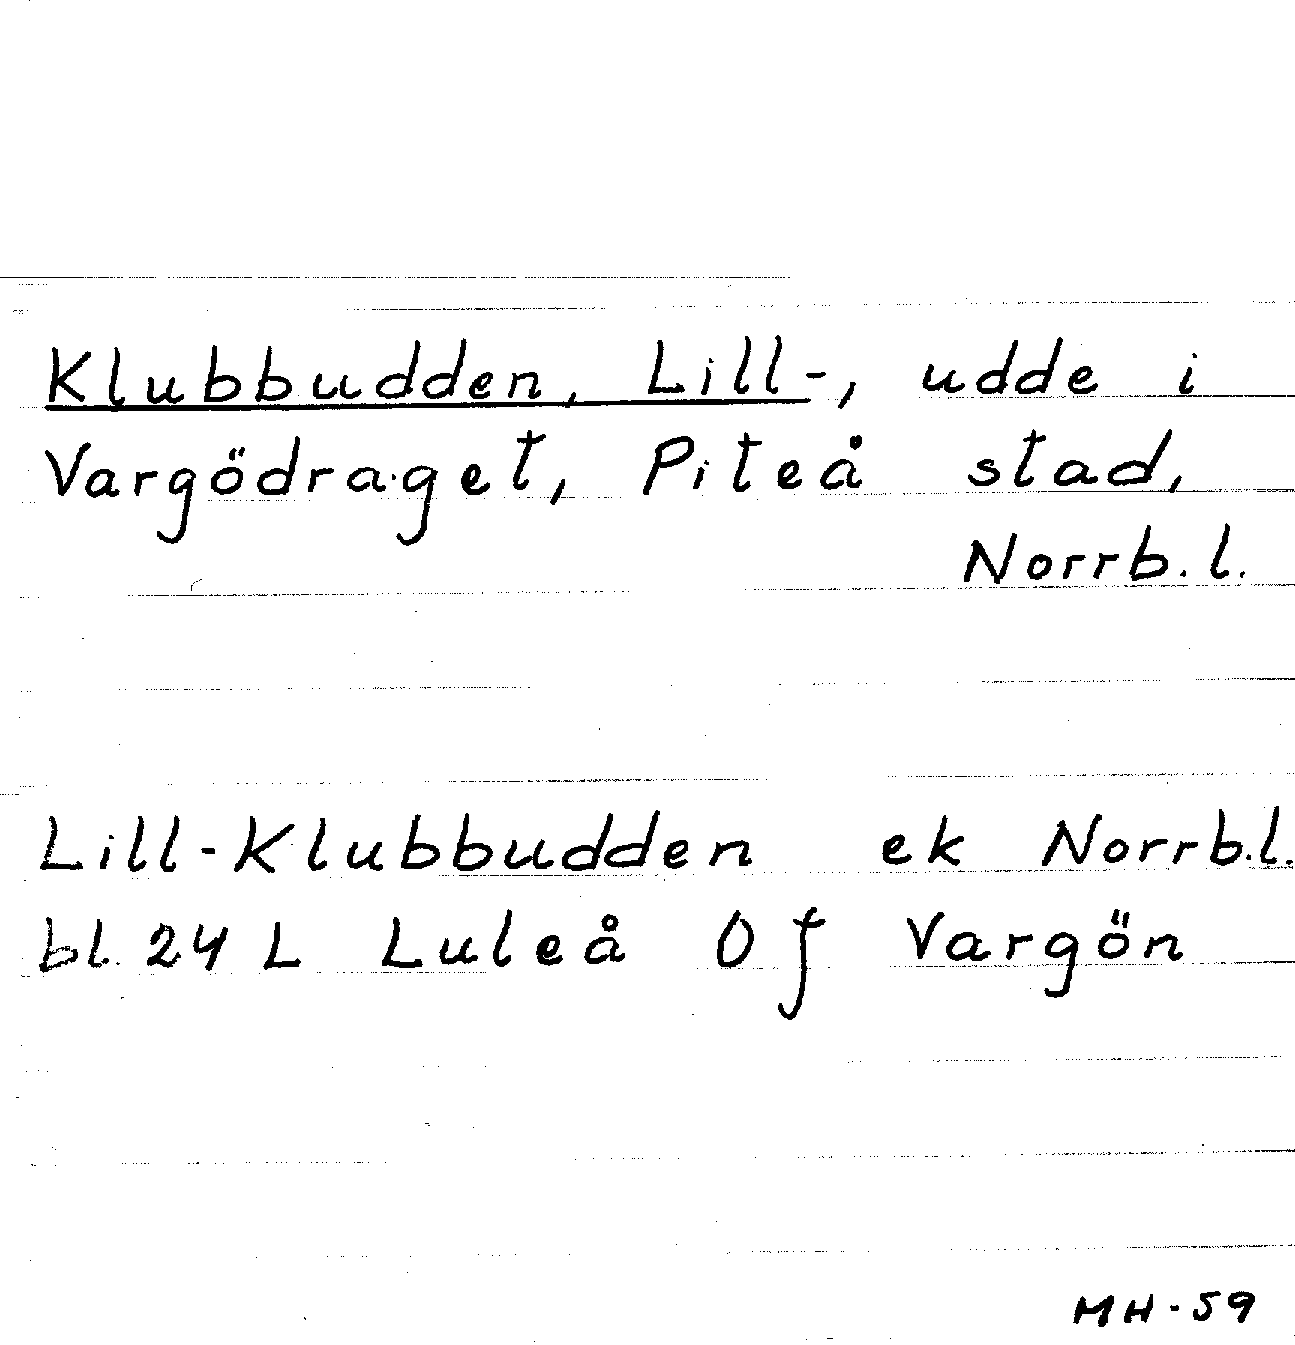 Klubbudden, Lill-, udde i
Vargödraget, Piteå stad,
Norrb.l.
Lill-Klubbudden ek Norrb.l.
bl. 24 L Luleå O f Vargön
MH-59